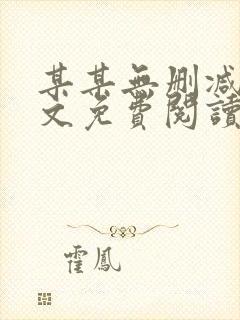 某某無刪减
文免費閱讀
霍鳳